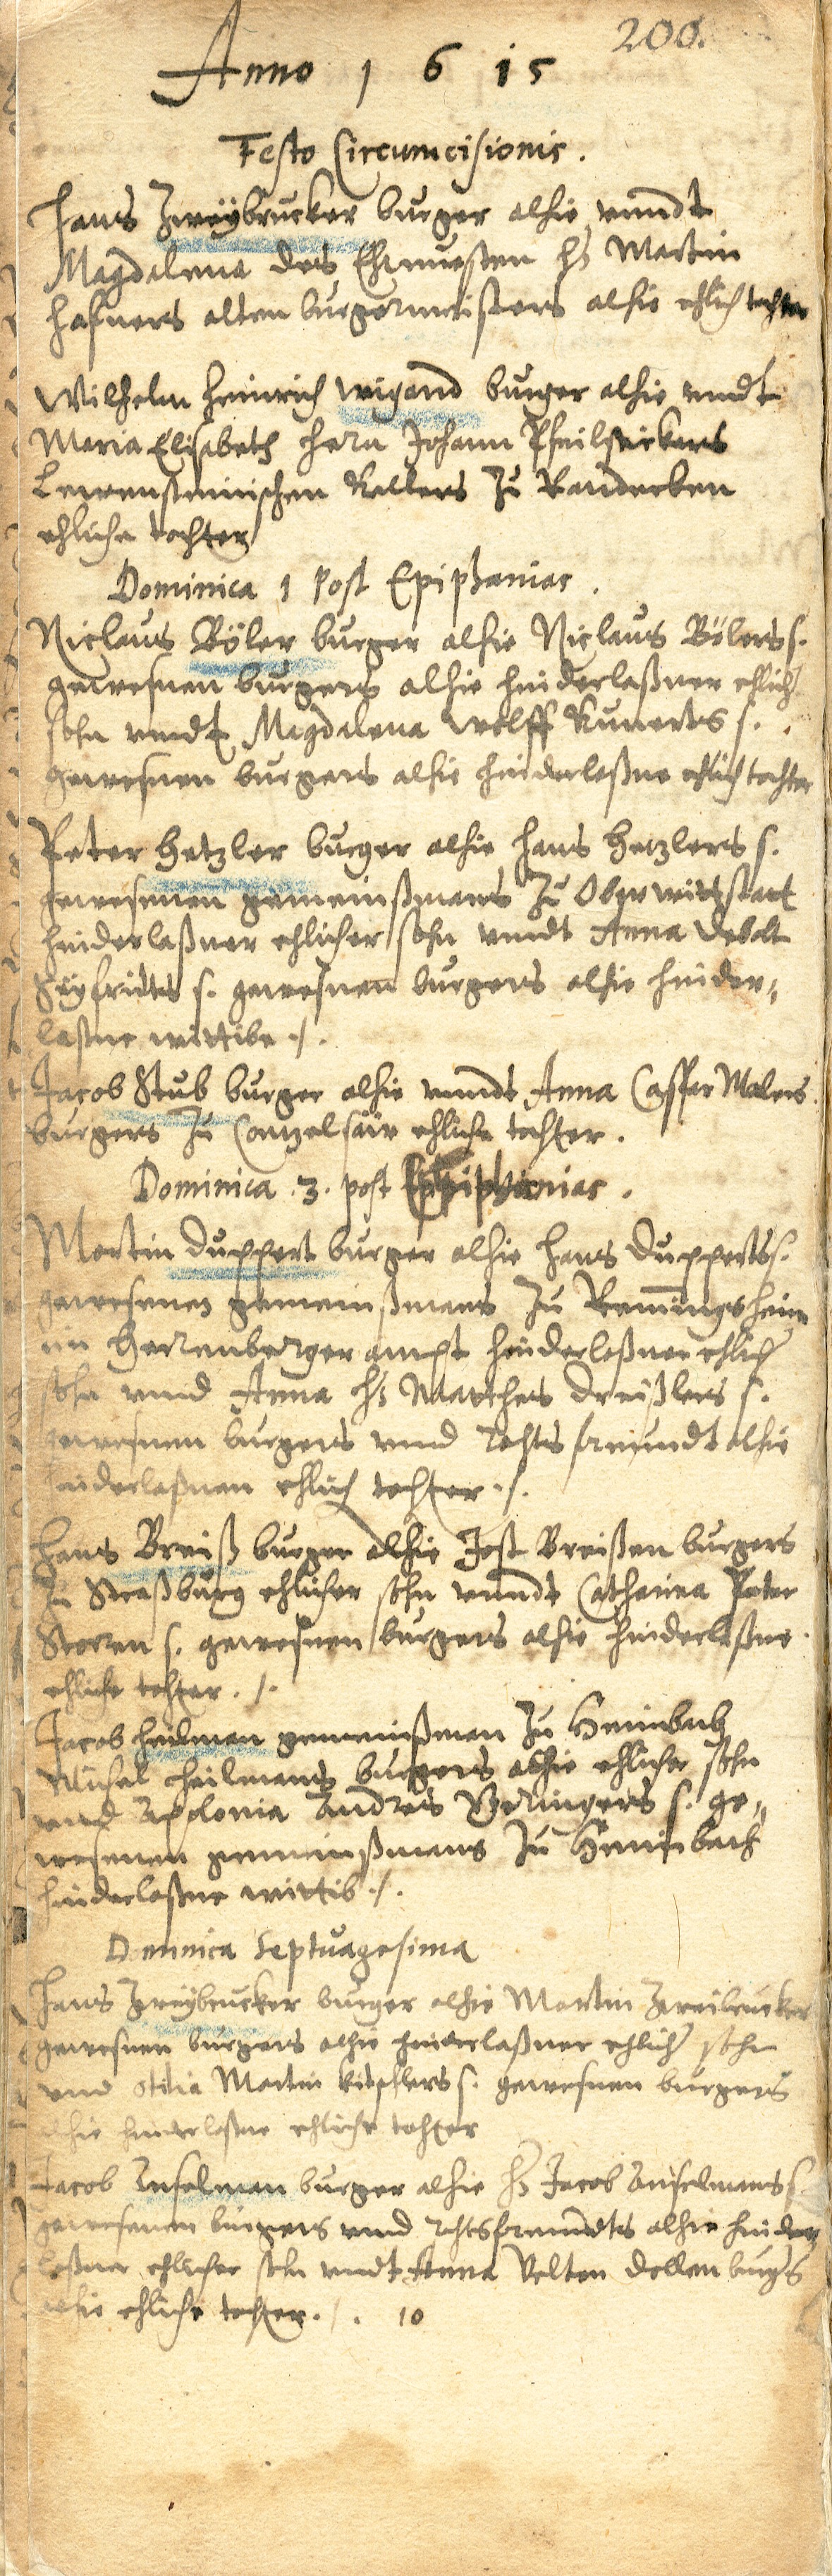 200.
Anno 1 6 15
Festo Circumcisionis.
Hans Zweybrucker burger alhie vnndt
Magdalena des Ehrnuesten hs Martin
Hafners alten burgermeisters alhie ehlich tochter
Wilhelm Heinrich Wigand burger alhie vndt
Maria Elisabeth Hern Johann Pfeilstickers
Lewensteinischen Kellers zu Randecken
ehliche tochter
Dominica 1 Post Epiphanias.
Niclaus Böler burger alhie Niclaus Bölers s.
gewesnen burgers alhie hinderlaßner ehlich
sohn vnndt Magdalena Wolff Kunerts s.
gewesnen burgers alhie hinderleßne ehlich tochter
Peter Hetzler burger alhie Hans Hetzlers s.
gewesenen gemeinßmans zu Oberwittstatt
hinderlaßner ehlicher sohn vnndt Anna Debolt
Seyfrids s. gewesnen burgers alhie hinder„
laßne wittibe ./.
Jacob Stub burger alhie vnndt Anna Caspar Malers
burgers zu ehliche tochter.
Dominica .3. post Epiphanias.
Martin Duppert burger alhie Hans Dupperts s.
gewesenen gemeinßmans zu Remingsheim
im Herrenberger ampt hinderleßner ehlich
sohn vnnd Anna hs Matthes Dreißlers s.
gewesnen burgers vnnd Rahtsfreundt alhie
hinderlaßnen ehlich tochter ./.
Hans Breiß burger alhie Jost Breißen burgers
zu Straßburg ehlicher sohn vnndt Catharina Peter
Storren s. gewesnen burgers alhie hinderleßne
ehliche tochter ./.
Jacob Heilman gemeinßman zu Heimbach
Michel Heilmans burgers alhie ehlicher sohn
vnd Apolonia Andres Beringers s. ge„
wesenen gemeinßmans zu Heimbach
hinderlaßne wittib ./.
Dominica Septuagesima
Hans Zweybrucker burger alhie Martin Zweibrucker
gewesnen burgers alhie hinderlaßner ehlich sohn
vnd Otilia Martin s. gewesnen burgers
alhie hinderleßne ehliche tochter
Jacob Anselman burger alhie hs Jacob Anselmans s.
gewesenen burgers vnnd Rahtsfreundts alhie hinder
leßner ehlicher sohn vndt Anna Velten Dollen burgers
alhie ehliche tochter ./. 10